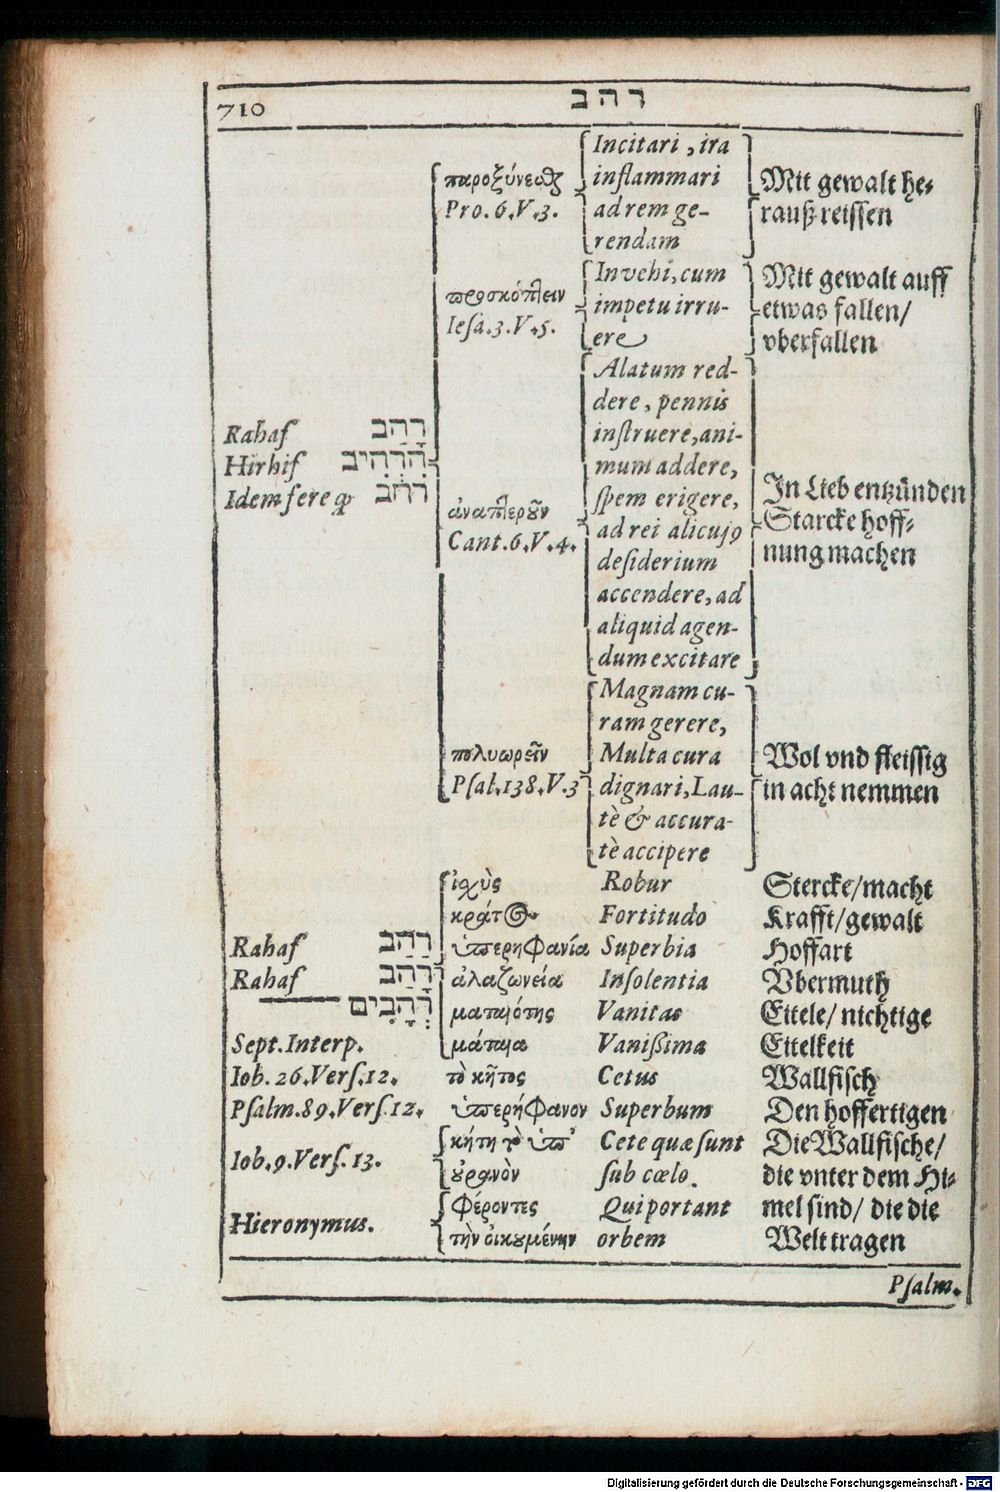 710
רהב
Rahaf רָהַב
Hirhif הִרְהִיב
Idem fere qp רחב
παροξύνεσθαι
Pro. 6. V. 3.
Incitari, ira
inflammari
ad rem ge-
rendam
Mit gewalt he-
rauß reissen
προσκόπτειν
Iesa. 3. V. 5.
Invehi, cum
impetu irru-
ere
Mit gewalt auff
etwas fallen/
vberfallen
ἀναπτεροῦν
Cant. 6. V. 4.
Alatum red-
dere, pennis
instruere, ani-
mum addere,
spem erigere,
ad rei alicujꝰ
desiderium
accendere, ad
aliquid agen-
dum excitare
In Lieb entzünden
Starcke hoff-
nung machen
πολυωρεῖν
Psal. 138. V. 3
Magnam cu-
ram gerere,
Multa cura
dignari, Lau-
tè & accura-
tè accipere
Wol vnd fleissig
in acht nemmen
ἰσχὺς Robur Stercke/macht
κράτος Fortitudo Krafft/gewalt
Rahaf רַהַב ὑπερηφανία Superbia Hoffart
Rahaf רָהַב ἀλαζωνεία Insolentia Vbermuth
רְהָבִים ματαιότης Vanitas Eitele/ nichtige
Sept. Interp. μάταια Vanißima Eitelkeit
Iob. 26. Vers. 12. τὸ κῆτος Cetus Wallfisch
Psalm. 89. Vers. 12. ὑπερήφανον Superbum Den hoffertigen
Iob. 9. Vers. 13. κήτη τὸ ὑπ' Cete quæ sunt Die Wallfische/
ὀρανὸν sub cœlo. die vnter dem Hi-
Hieronymus. Φέροντες Qui portant mel sind/ die die
τὴν οἰκουμένην orbem Welt tragen
Psalm.
Digitalisierung gefördert durch die Deutsche Forschungsgemeinschaft - DFG